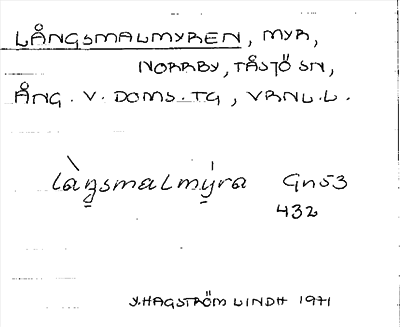 LÅNGSMALMYREN, MYR,
NORRBY, TÅSJÖ SN,
ÅNG. V. DOMS. TG, VRNL. L.
làŋ̠smalmý̠ra Gn53
432
Y. HAGSTRÖM LINDH 1971